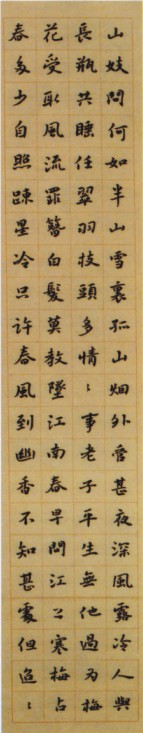 山妓問何如半山雪裏孤山烟外管甚夜深風露冷人與
長瓶共睡任翠羽枝頭多情〻事老子平生無他過為梅
花受取風流罪簪白髮莫教墜江南春早問江上寒梅占
春多少自照疎星冷只許春風到幽香不知甚處但迢〻